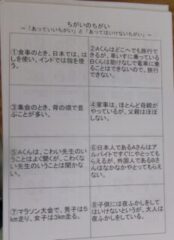 ちがいのちがい
－「あっていいちがい」と「あってはいけないちがい」－
①食事のとき、日本では、は
しを使い、インドでは指を使
う。
②Aくんはどこへでも旅行で
きるが、車いすに乗っている
Bくんは助けなしで電車に乗
ることはできないので、旅行
できない。
③集会のとき、背の順で並
ぶことが多い。
④家事は、ほとんど母親が
やっているが、父親はほぼ
しない。
⑤Aくんは、こわい先生のい
うことはよく聞くが、こわくな
い先生のいうことは聞かな
い。
⑥日本人であるAさんはア
ルバイトですぐにやとっても
らえるが、外国人であるBさ
んはなかなかやとってもらえ
ない。
⑦マラソン大会で、男子は5
km走り、女子は3km走る。
⑧子供には夜ふかしをして
はいけないというが、大人は
夜ふかしをしている。